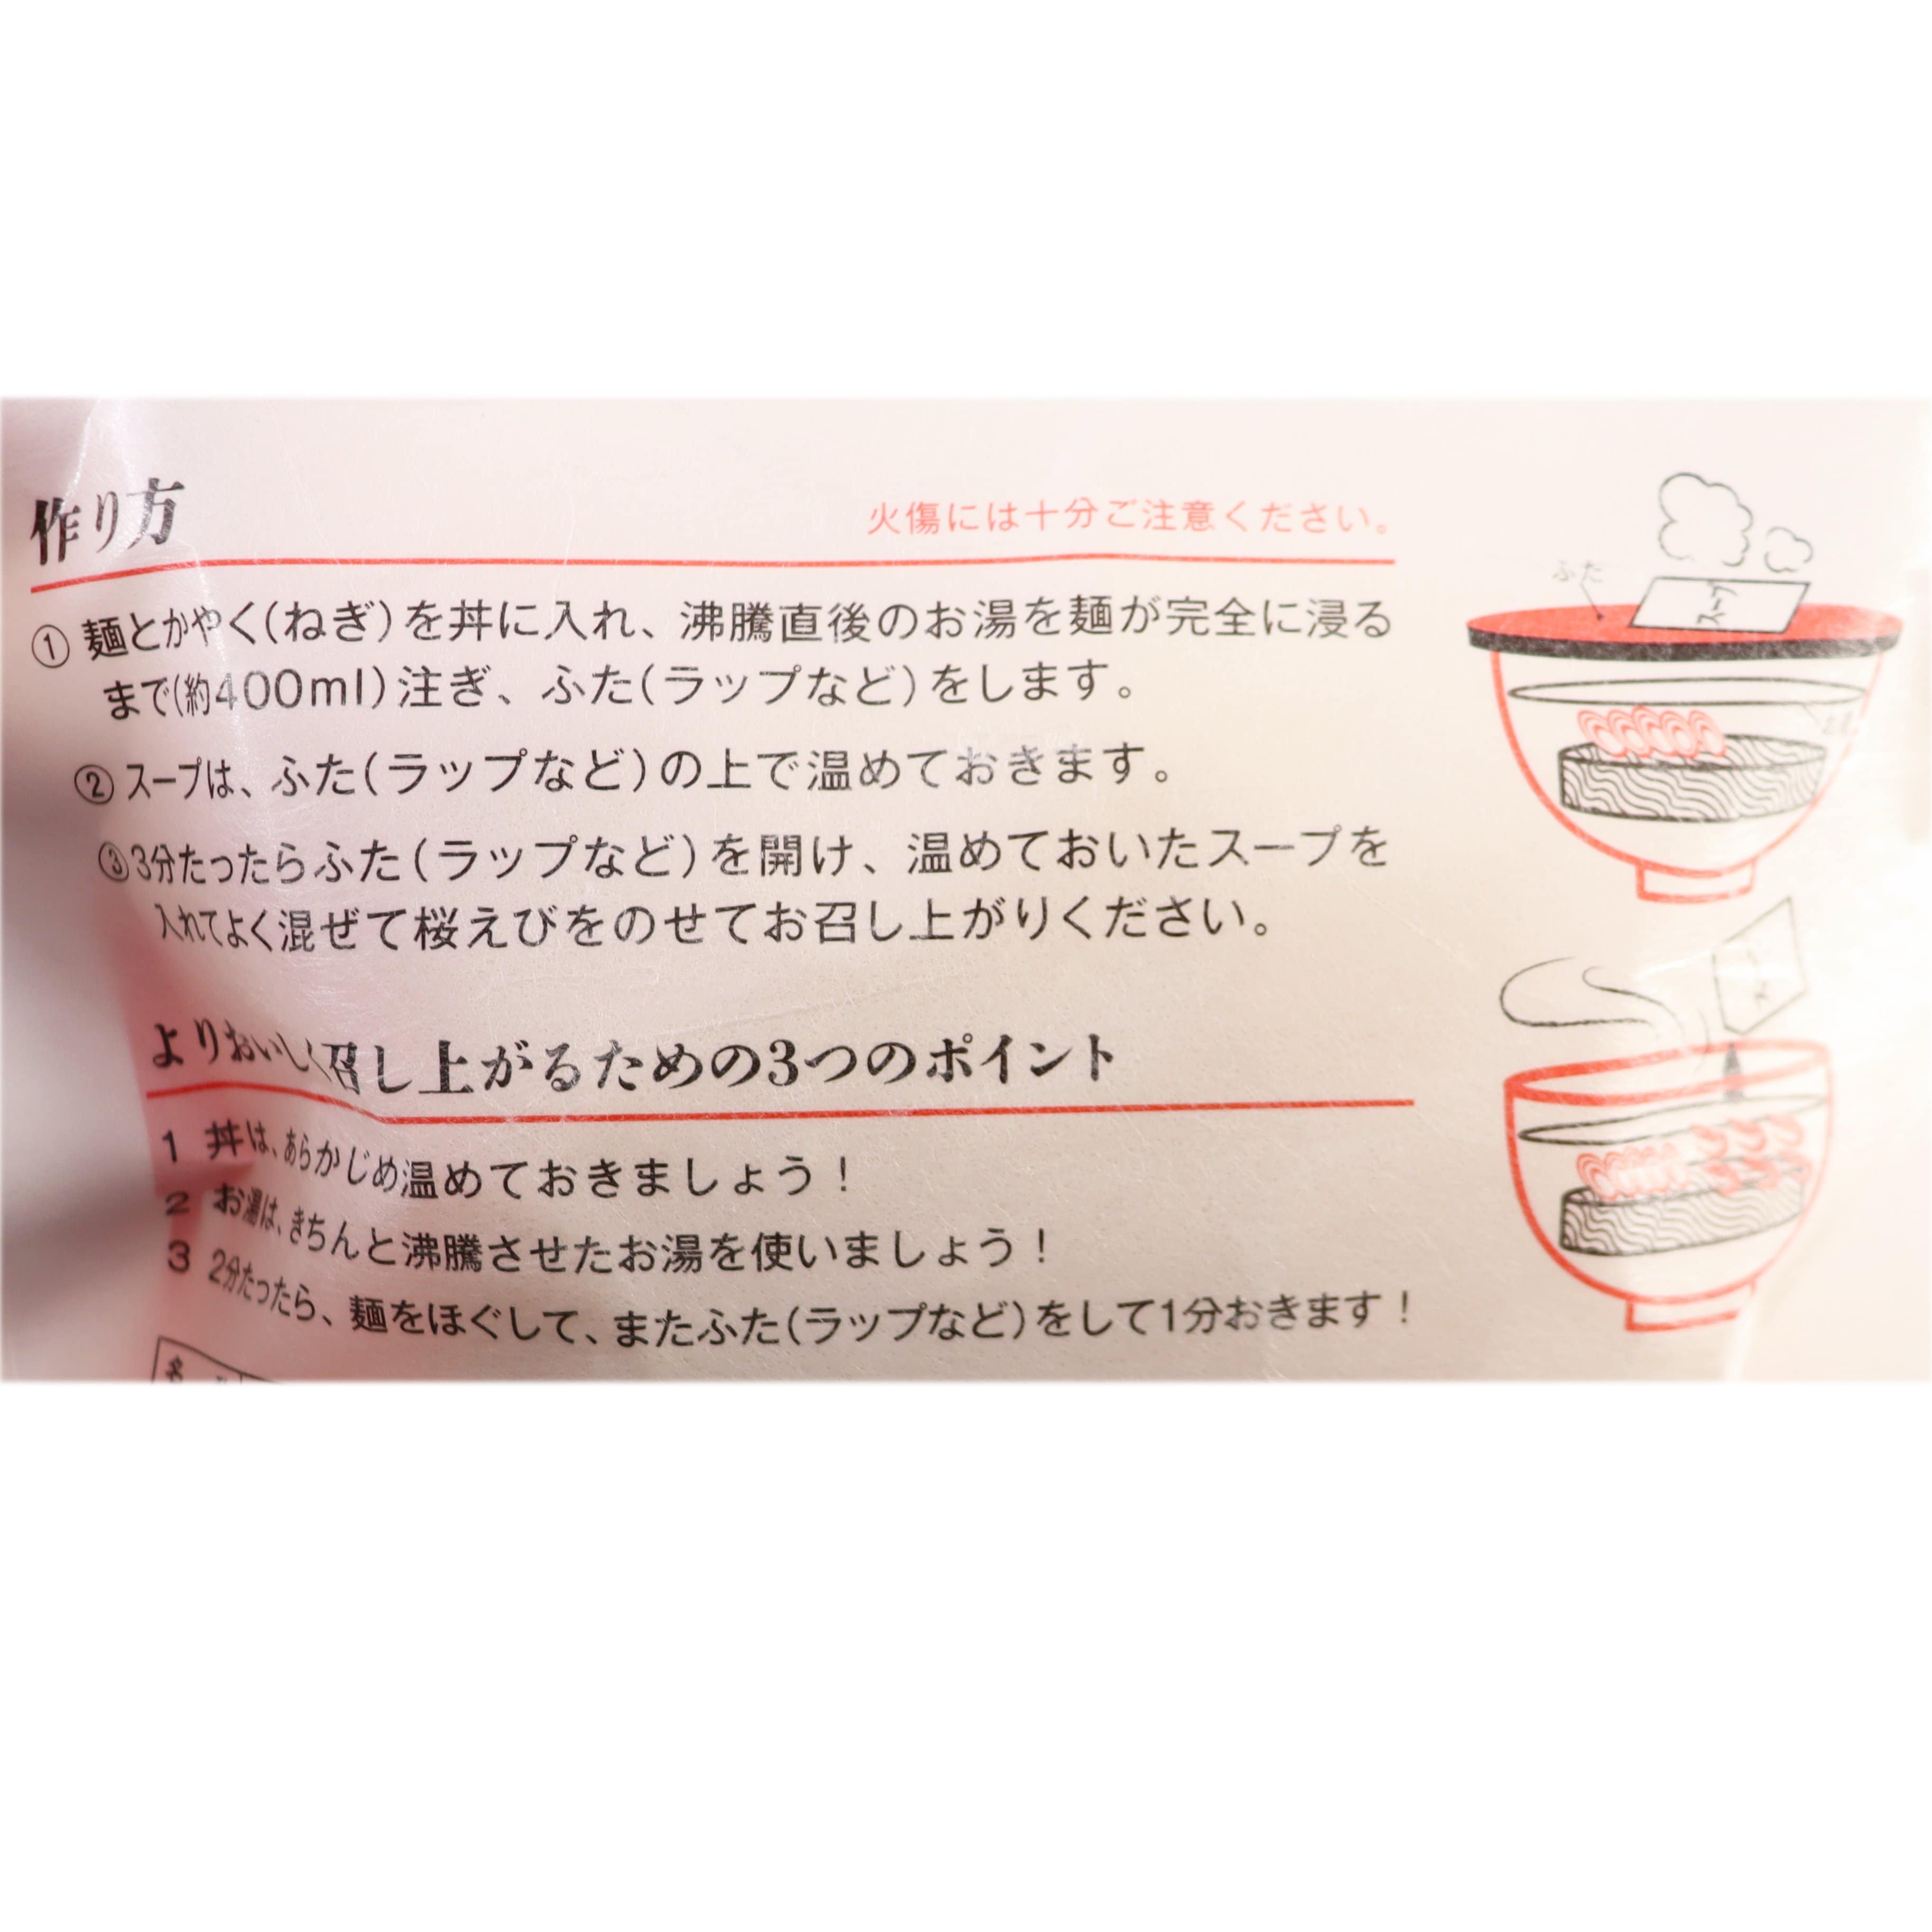 作り方
火傷には十分ご注意ください。
① 麺とかやく(ねぎ)を丼に入れ、沸騰直後のお湯を麺が完全に浸る
まで(約400ml)注ぎ、ふた(ラップなど)をします。
② スープは、ふた(ラップなど)の上で温めておきます。
③ 3分たったらふた(ラップなど)を開け、温めておいたスープを
入れてよく混ぜて桜えびをのせてお召し上がりください。
よりおいしく召し上がるための3つのポイント
1 丼は、あらかじめ温めておきましょう！
2 お湯は、きちんと沸騰させたお湯を使いましょう！
3 2分たったら、麺をほぐして、またふた(ラップなど)をして1分おきます！
ふた
スープ
スープ
名